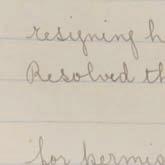 resigning h
Resolved th
for permis